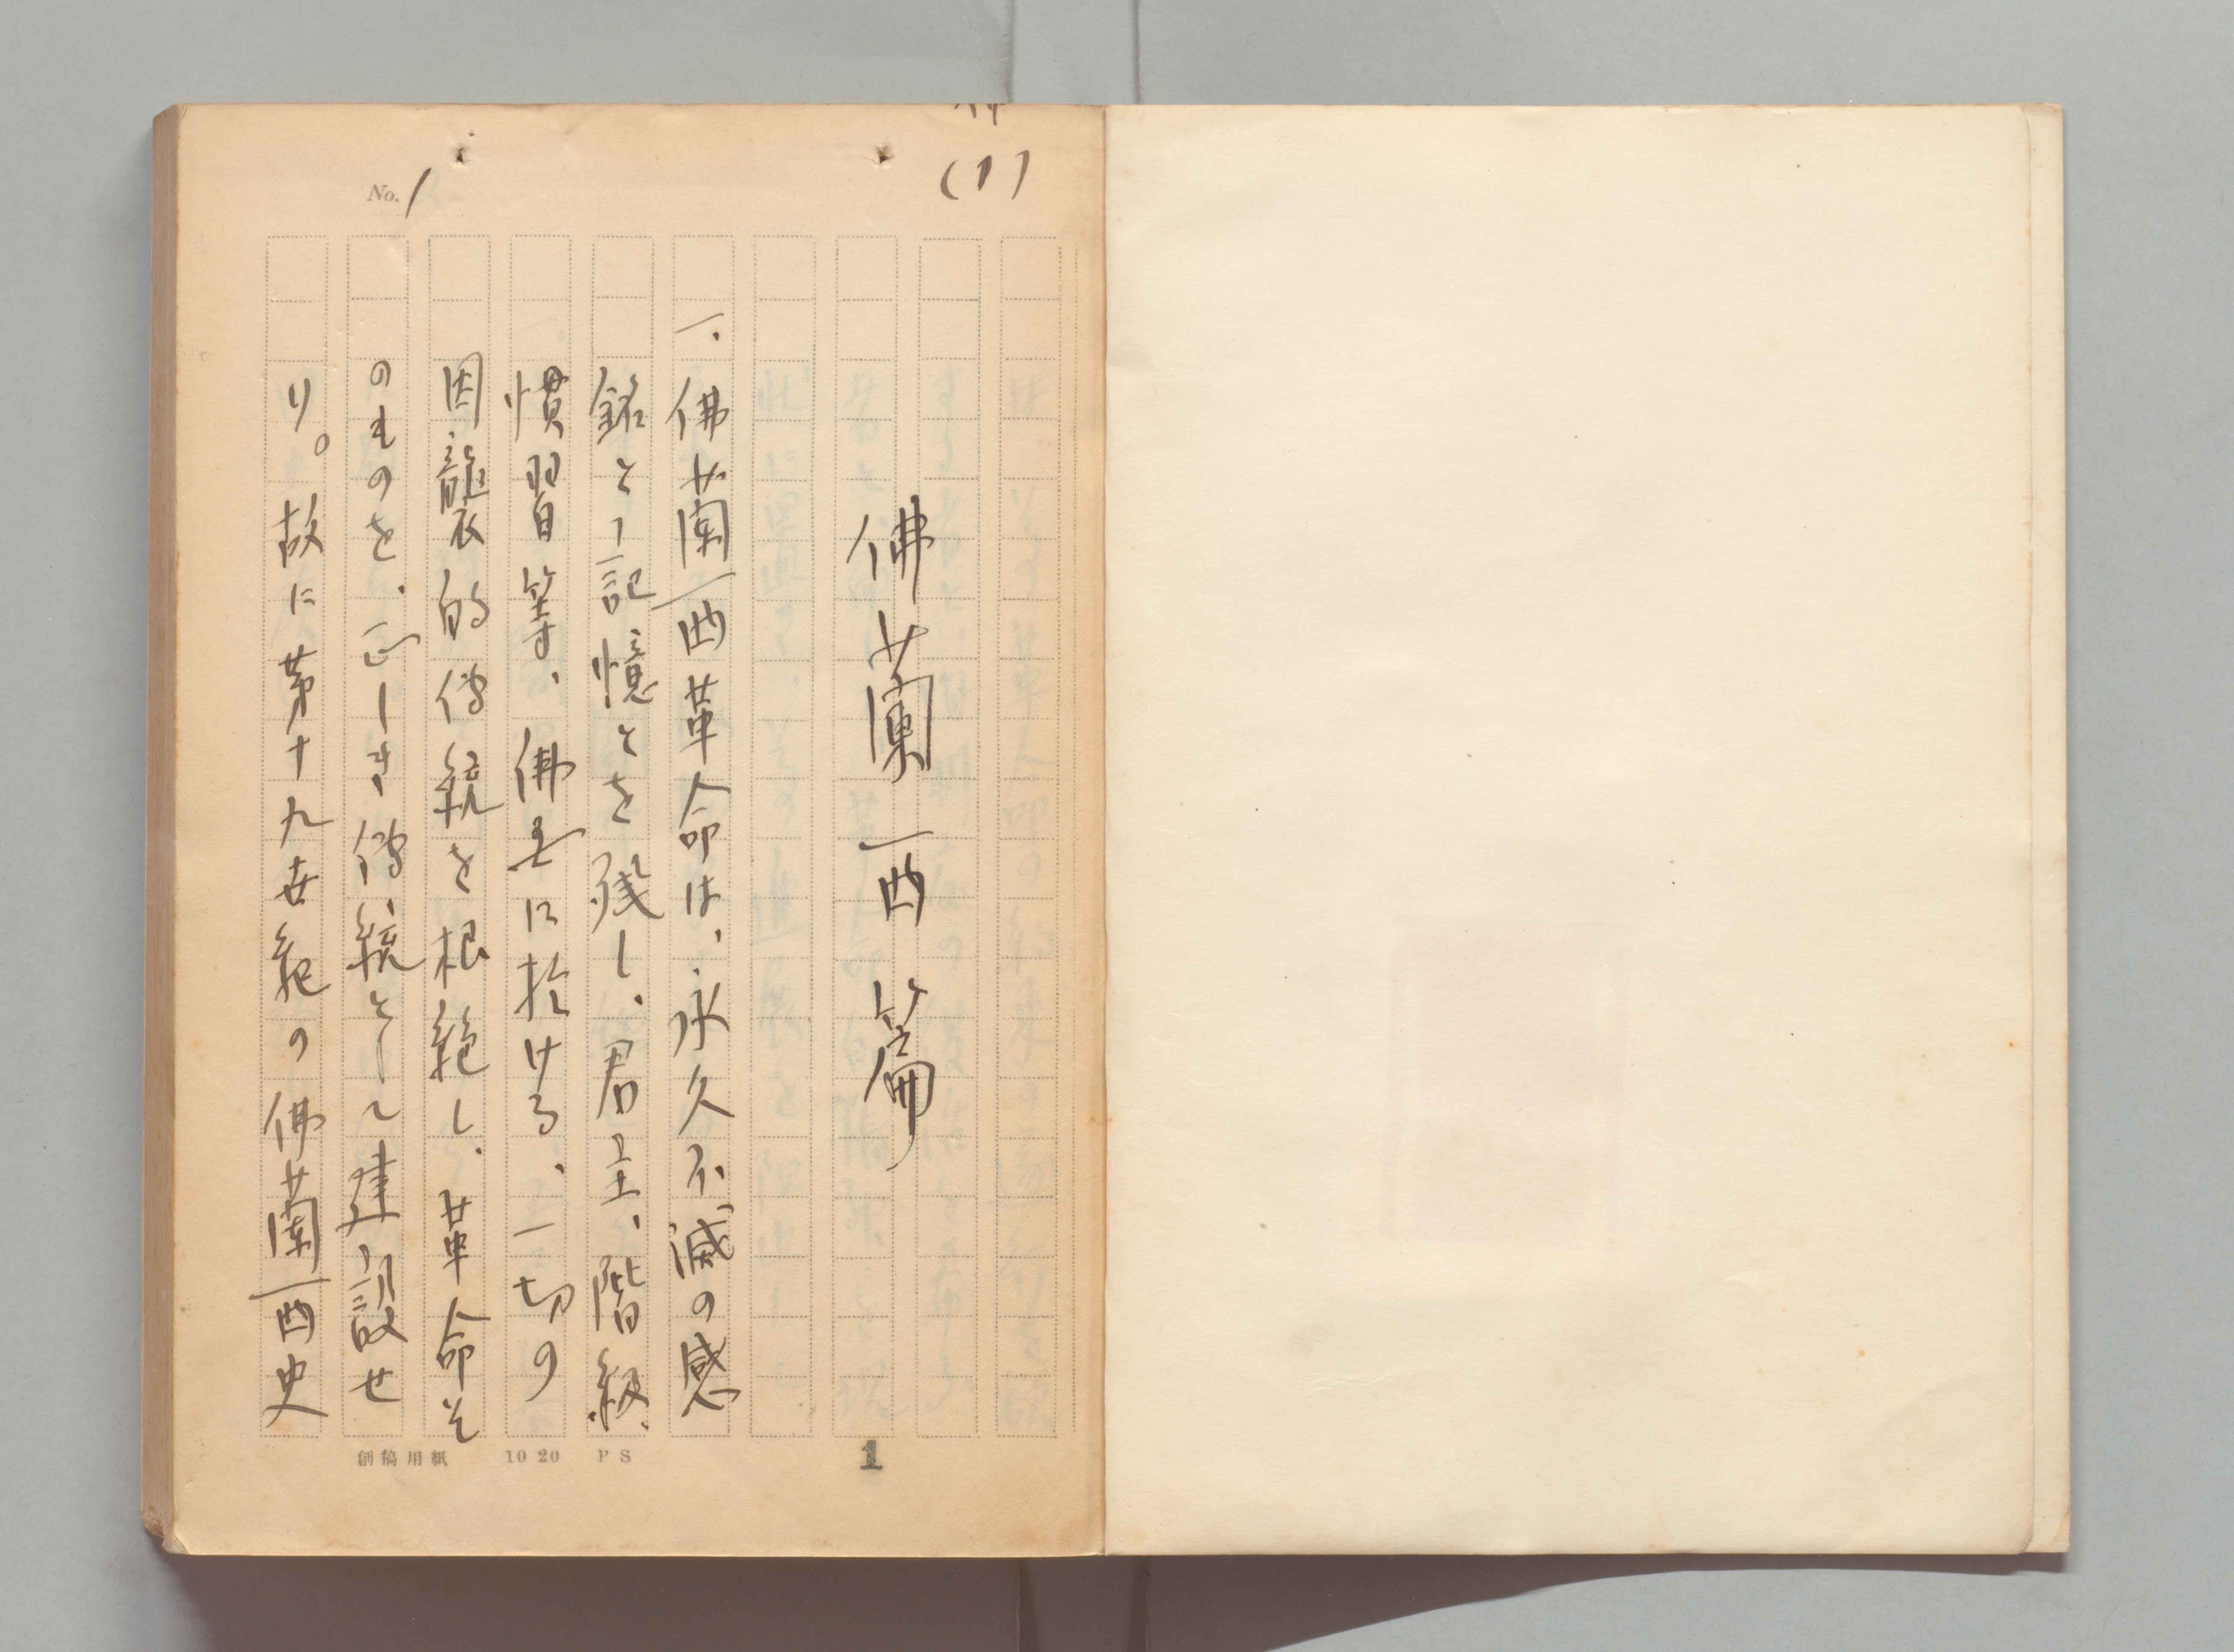 (1)
No. 1
佛蘭西篇
一、佛蘭西革命は、永久不滅の感
銘と記憶とを残し、君主、階級、
慣習等、佛國に於ける、一切の
因襲的傳統を根絶し、革命そ
のものを、正しき傳統として建設せ
り。故に第十九世紀の佛蘭西史
創稿用紙 10 20 PS
1